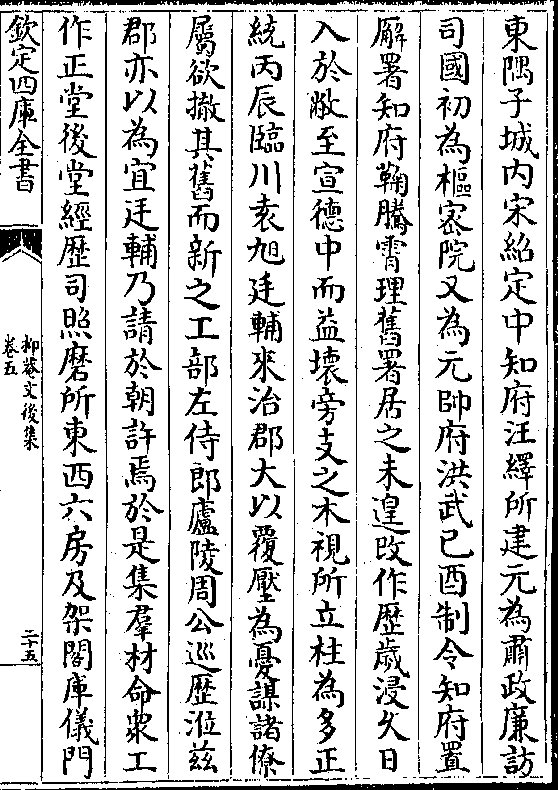 東隅子城内宋紹定中知府汪繹所建元為肅政廉訪
司國初為樞宻院又為元帥府洪武己酉制令知府置
廨署知府鞠騰霄理舊署居之未遑改作歴歲浸乆日
入於敝至宣德中而益壊旁支之木視所立柱為多正
統丙辰臨川袁旭廷輔來治郡大以覆壓為憂謀諸僚
屬欲撤其舊而新之工部左侍郎廬陵周公廵歴涖兹
郡亦以為宜廷輔乃請於朝許焉於是集羣材命衆工
作正堂後堂經歴司照磨所東西六房及架閣庫儀門
欽定四庫全書
抑菴文後集
卷五
二十五